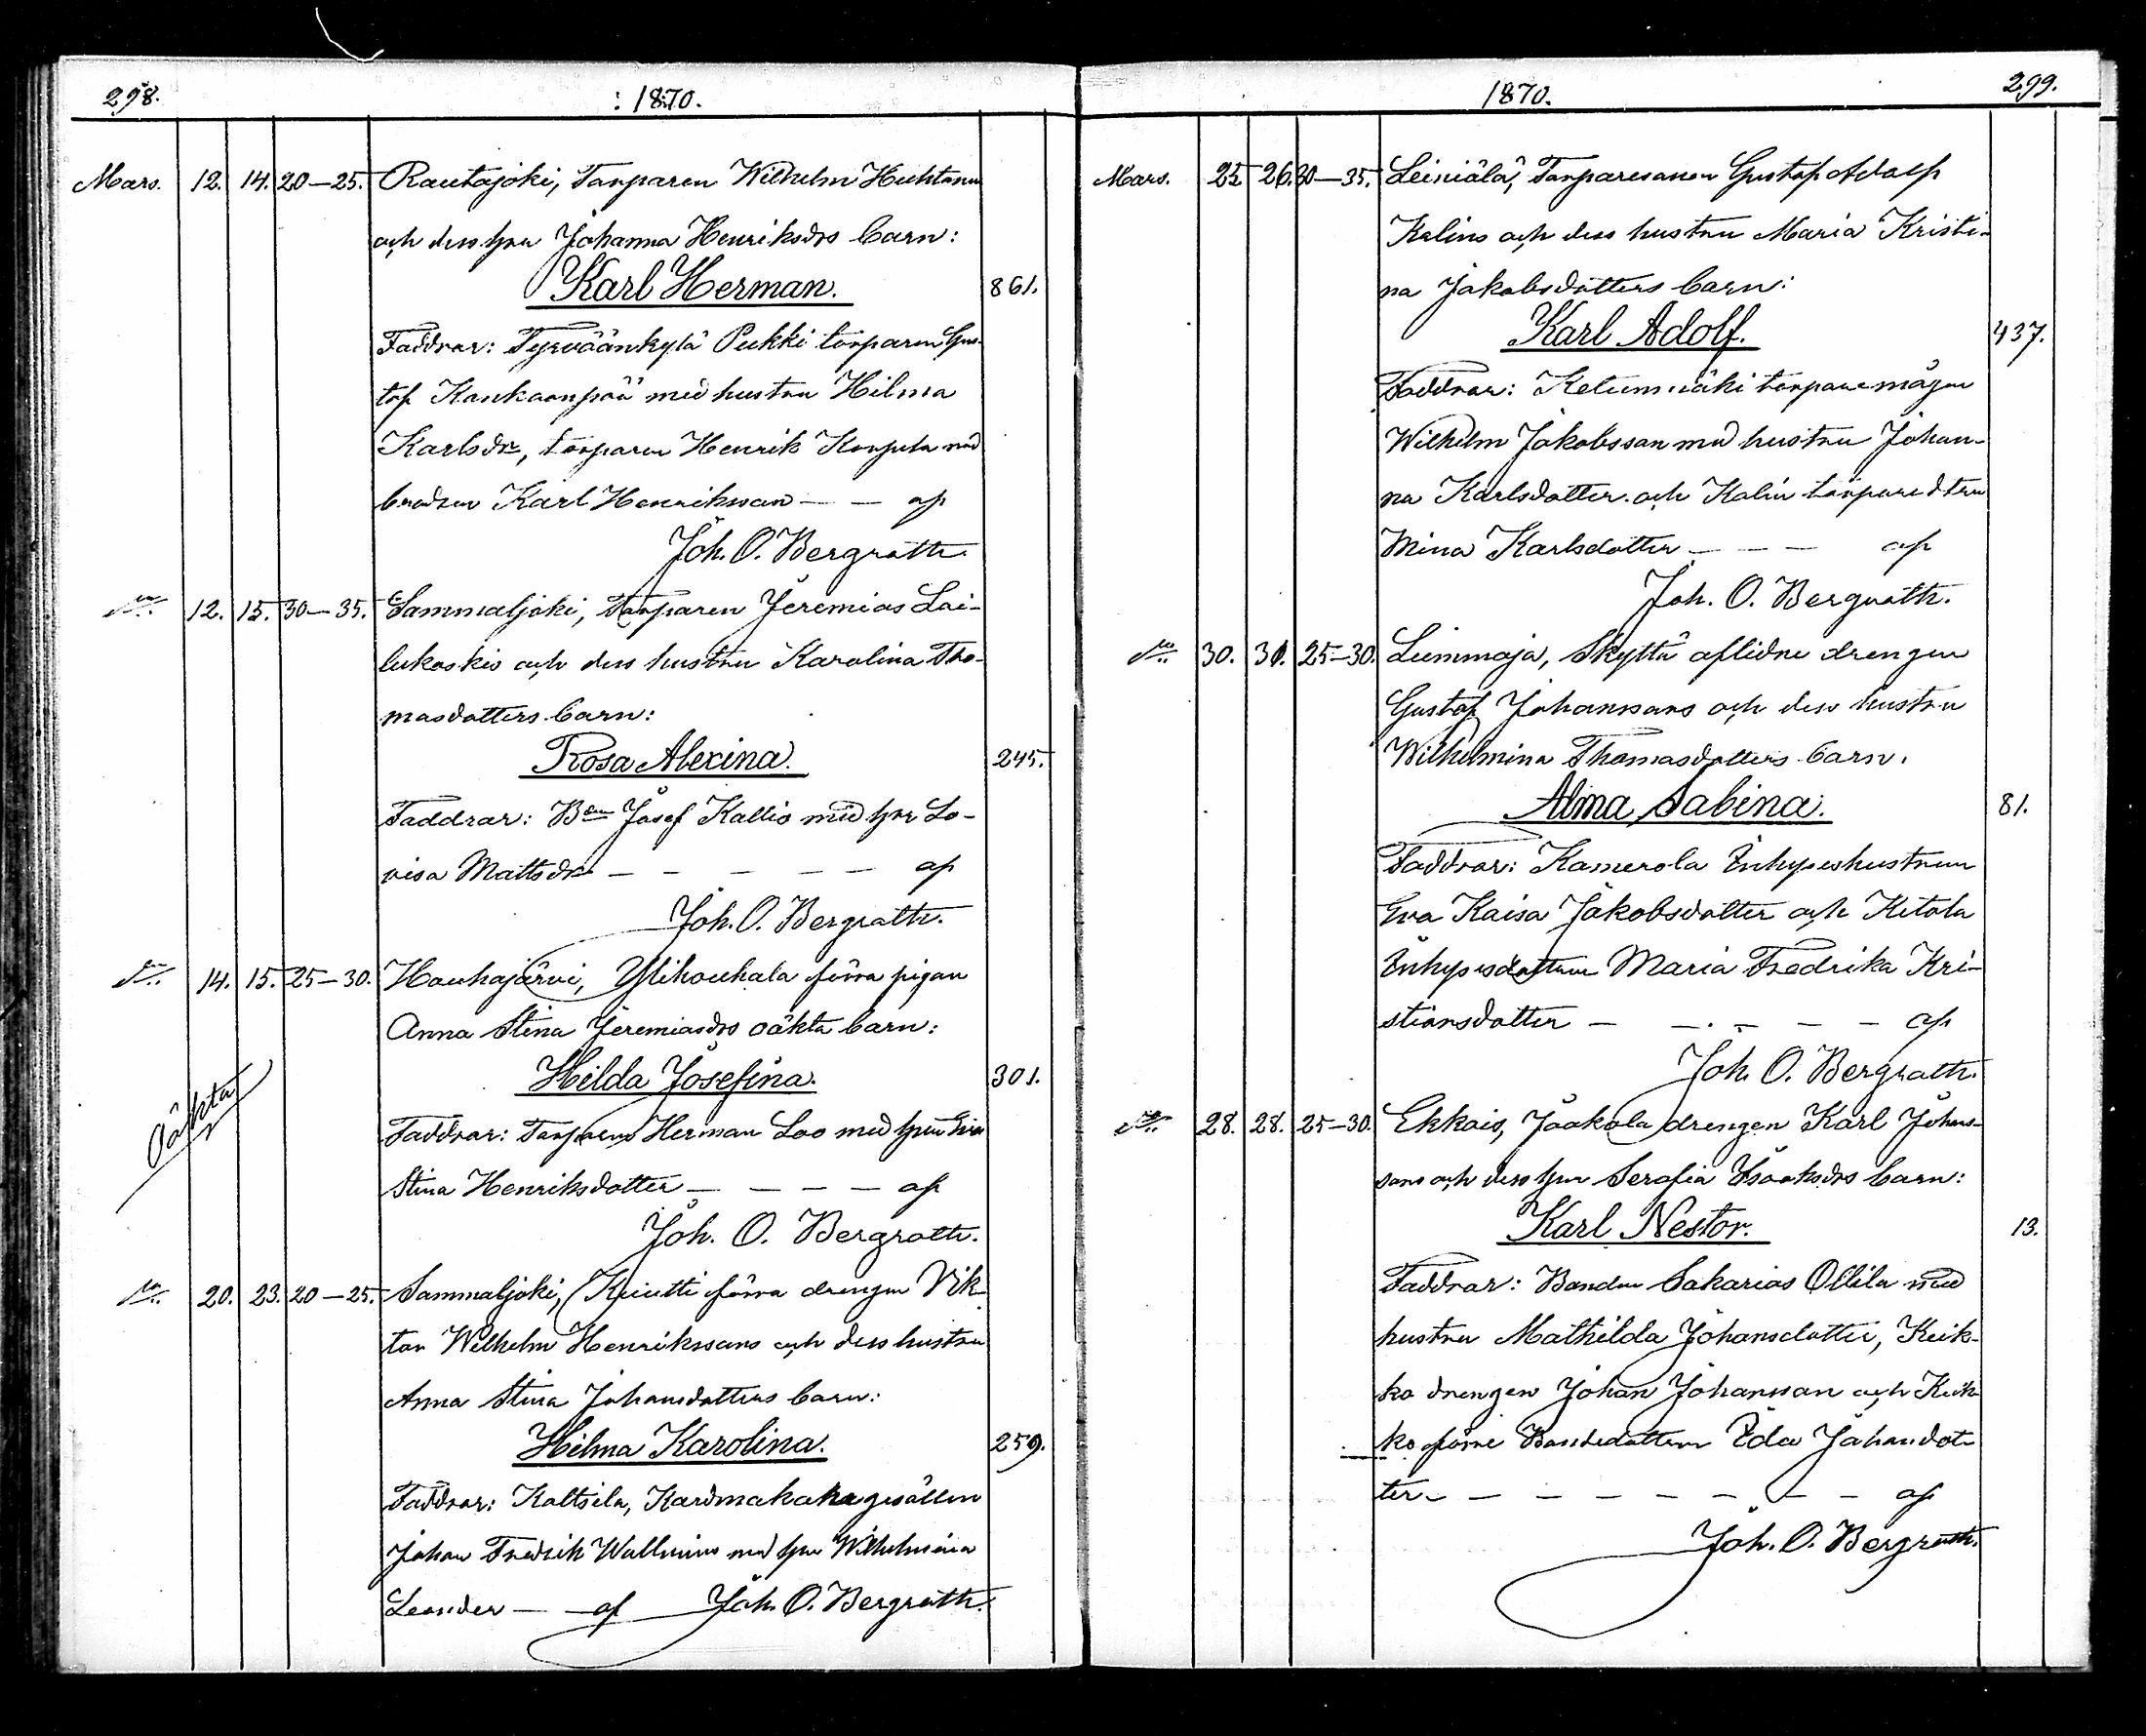 298.
: 1870.
Mars. 12. 14. 20—25. Rautajoki, Torparen Wilhelm Huhtanens
och dess hru Johanna Henriksdrs barn:
Karl Herman. 861.
Faddrar: Tyrväänkylä Pukki torparen Gus-
taf Kankaanpää med hustru Hilma
Karlsdr, torparen Henrik Korpela med
brodren Karl Henriksson — — af
Joh. O. Bergroth.
12. 15. 30—35. Sammaljoki, Torparen Jeremias Lai-
lukoskis och dess hustru Karolina Tho-
masdotters barn:
Rosa Alexina. 245.
Faddrar: Ben Josef Kallio med hru Lo-
visa Mattsdr — — — — — af
Joh. O. Bergroth.
14. 15. 25—30. Houhajärvi, Ylihouhala förra pigan
Anna Stina Jeremiasdrs oäkta barn:
Hilda Josefina. 301.
oäkta
Faddrar: Torparen Herman Loo med hrun Eva
Stina Henriksdotter — — — — af
Joh. O. Bergroth.
20. 23. 20—25. Sammaljoki, förra drengen Vik-
tor Wilhelm Henrikssons och dess hustru
Anna Stina Johansdotters barn:
Hilma Karolina. 259.
Faddrar: Kaltsila, Kardmakaregesällen
Johan Fredrik Wallenius med hru Wilhelmina
Leander — — af Joh. O. Bergroth.
1870.
299.
Mars. 25. 26. 30—35. Leiniälä, Torparesonen Gustaf Adolf
Kalins och dess hustru Maria Kristi-
na Jakobsdotters barn:
Karl Adolf. 437.
Faddrar: Ketunmäki torparemågen
Wilhelm Jakobsson med hustru Johan-
na Karlsdotter och Kalin torparedtrn
Mina Karlsdotter — — — af
Joh. O. Bergroth.
30. 31. 25—30. Liemmaja, Skyttä aflidne drengen
Gustaf Johanssons och dess hustru
Wilhelmina Thomasdotters barn.
Alma Sabina. 81.
Faddrar: Kamerola Inhyseshustrun
Eva Kaisa Jakobsdotter och Ketola
Inhysesdottren Maria Fredrika Kri-
stiansdotter — — — — — af
Joh. O. Bergroth.
28. 28. 25—30. Ekkois, Jaakola drengen Karl Johans-
sons och dess hru Serafia Isaaksdrs barn:
Karl Nestor. 13.
Faddrar: Bonden Sakarias Ollila med
hustru Mathilda Johansdotter, Keik-
ko drengen Johan Johansson och Keik-
ko förre Bondedottern Eda Johansdot-
ter — — — — — — — — af
Joh. O. Bergroth.